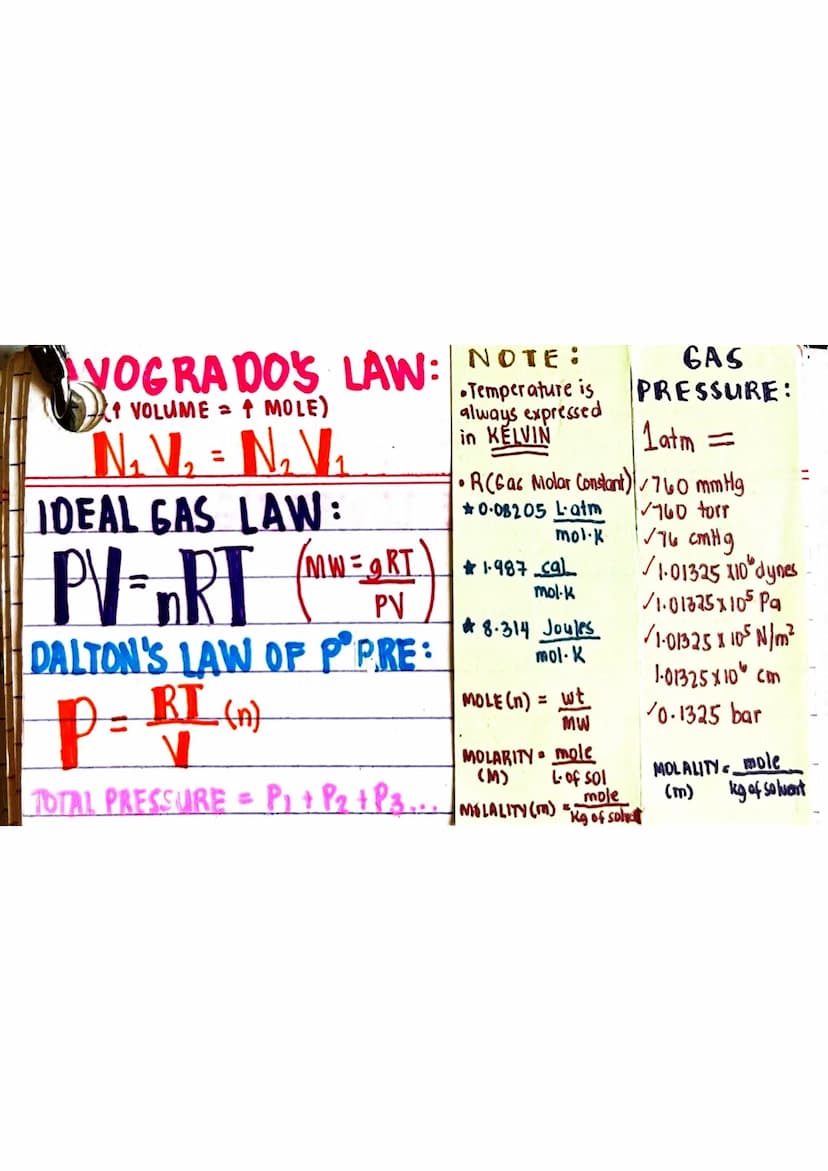 AVOGRADO'S LAW:
(↑ VOLUME = ↑ MOLE)
N₁V₂ = N₂V₁
IDEAL GAS LAW:
PV=nRT (MW = gRT
PV)
DALTON'S LAW OF P°PRE:
P = RT (n)
V
TOTAL PRESSURE = P₁ + P₂ + P₃...
NOTE:
•Temperature is
always expressed
in KELVIN
• R(Gas Molar Constant)
★ 0.08205 L·atm
mol·K
★ 1.987 cal
mol·K
★ 8.314 Joules
mol·K
MOLE(n) = wt
MW
MOLARITY = mole
(M) L·of sol
MOLALITY(m) = mole
Kg of solvent
GAS
PRESSURE:
1atm =
✓760 mmHg
✓760 torr
✓76 cmHg
✓1.01325 x10⁶ dynes
✓1.01325 x 10⁵ Pa
✓1.01325 x 10⁵ N/m²
1.01325 x 10⁶ cm
✓0.1325 bar
MOLALITY = mole
(m) kg of solvent